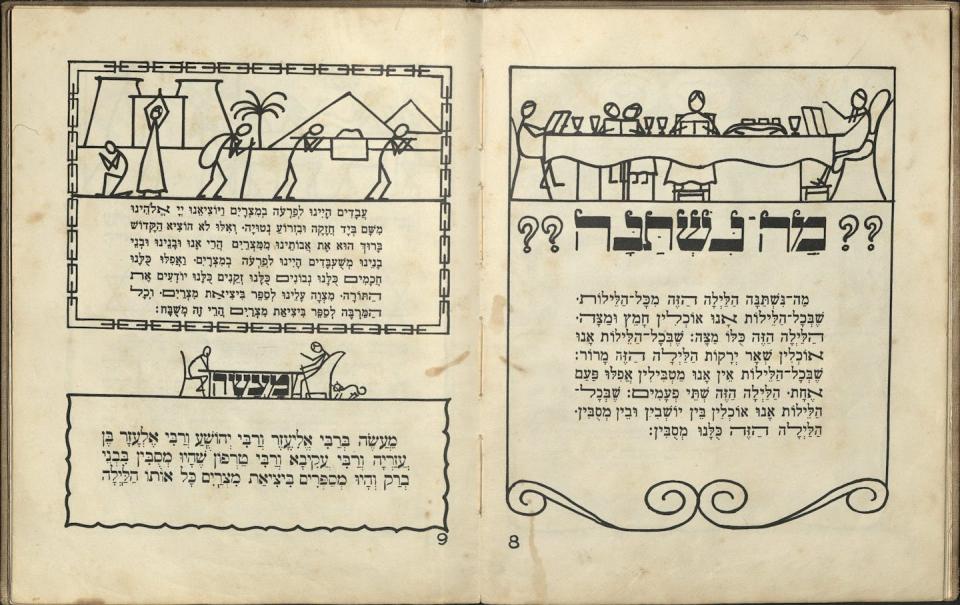 ?? מַה־נִּשְׁתַּנָּה ??
מַה־נִּשְׁתַּנָּה הַלַּיְלָה הַזֶּה מִכָּל־הַלֵּילוֹת·
שֶׁבְּכָל־הַלֵּילוֹת אָנוּ אוֹכְלִין חָמֵץ וּמַצָּה·
הַלַּיְלָה הַזֶּה כֻּלּוֹ מַצָּה: שֶׁבְּכָל־הַלֵּילוֹת אָנוּ
אוֹכְלִין שְׁאָר יְרָקוֹת הַלַּיְלָה הַזֶּה מָרוֹר:
שֶׁבְּכָל־הַלֵּילוֹת אֵין אָנוּ מַטְבִּילִין אֲפִלּוּ פַּעַם
אֶחָת· הַלַּיְלָה הַזֶּה שְׁתֵּי פְעָמִים: שֶׁבְּכָל־
הַלֵּילוֹת אָנוּ אוֹכְלִין בֵּין יוֹשְׁבִין וּבֵין מְסֻבִּין·
הַלַּיְלָה הַזֶּה כֻּלָּנוּ מְסֻבִּין:
8
עֲבָדִים הָיִינוּ לְפַרְעֹה בְּמִצְרָיִם וַיּוֹצִיאֵנוּ יְיָ אֱלֹהֵינוּ
מִשָּׁם בְּיָד חֲזָקָה וּבִזְרוֹעַ נְטוּיָה· וְאִלּוּ לֹא הוֹצִיא הַקָּדוֹשׁ
בָּרוּךְ הוּא אֶת אֲבוֹתֵינוּ מִמִּצְרַיִם הֲרֵי אָנוּ וּבָנֵינוּ וּבְנֵי
בָנֵינוּ מְשֻׁעְבָּדִים הָיִינוּ לְפַרְעֹה בְּמִצְרָיִם· וַאֲפִלּוּ כֻּלָּנוּ
חֲכָמִים כֻּלָּנוּ נְבוֹנִים כֻּלָּנוּ זְקֵנִים כֻּלָּנוּ יוֹדְעִים אֶת
הַתּוֹרָה· מִצְוָה עָלֵינוּ לְסַפֵּר בִּיצִיאַת מִצְרָיִם· וְכָל
הַמַּרְבֶּה לְסַפֵּר בִּיצִיאַת מִצְרַיִם הֲרֵי זֶה מְשֻׁבָּח:
מַעֲשֶׂה
מַעֲשֶׂה בְּרַבִּי אֱלִיעֶזֶר וְרַבִּי יְהוֹשֻׁעַ וְרַבִּי אֶלְעָזָר בֶּן
עֲזַרְיָה וְרַבִּי עֲקִיבָא וְרַבִּי טַרְפוֹן שֶׁהָיוּ מְסֻבִּין בִּבְנֵי
בְרַק וְהָיוּ מְסַפְּרִים בִּיצִיאַת מִצְרַיִם כָּל אוֹתוֹ הַלַּיְלָה
9